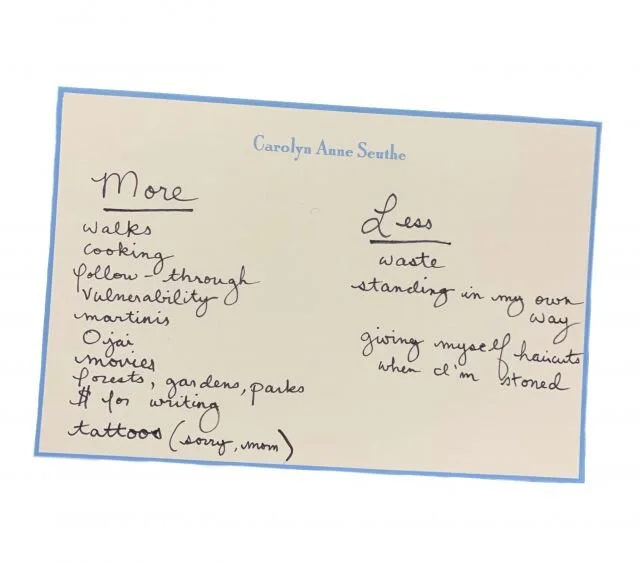 Carolyn Anne Seuthe
More
walks
cooking
follow-through
vulnerability
martinis
Ojai
movies
forests, gardens, parks
$ for writing
tattoos (sorry, mom)
Less
waste
standing in my own
way
giving myself haircuts
when I'm stoned